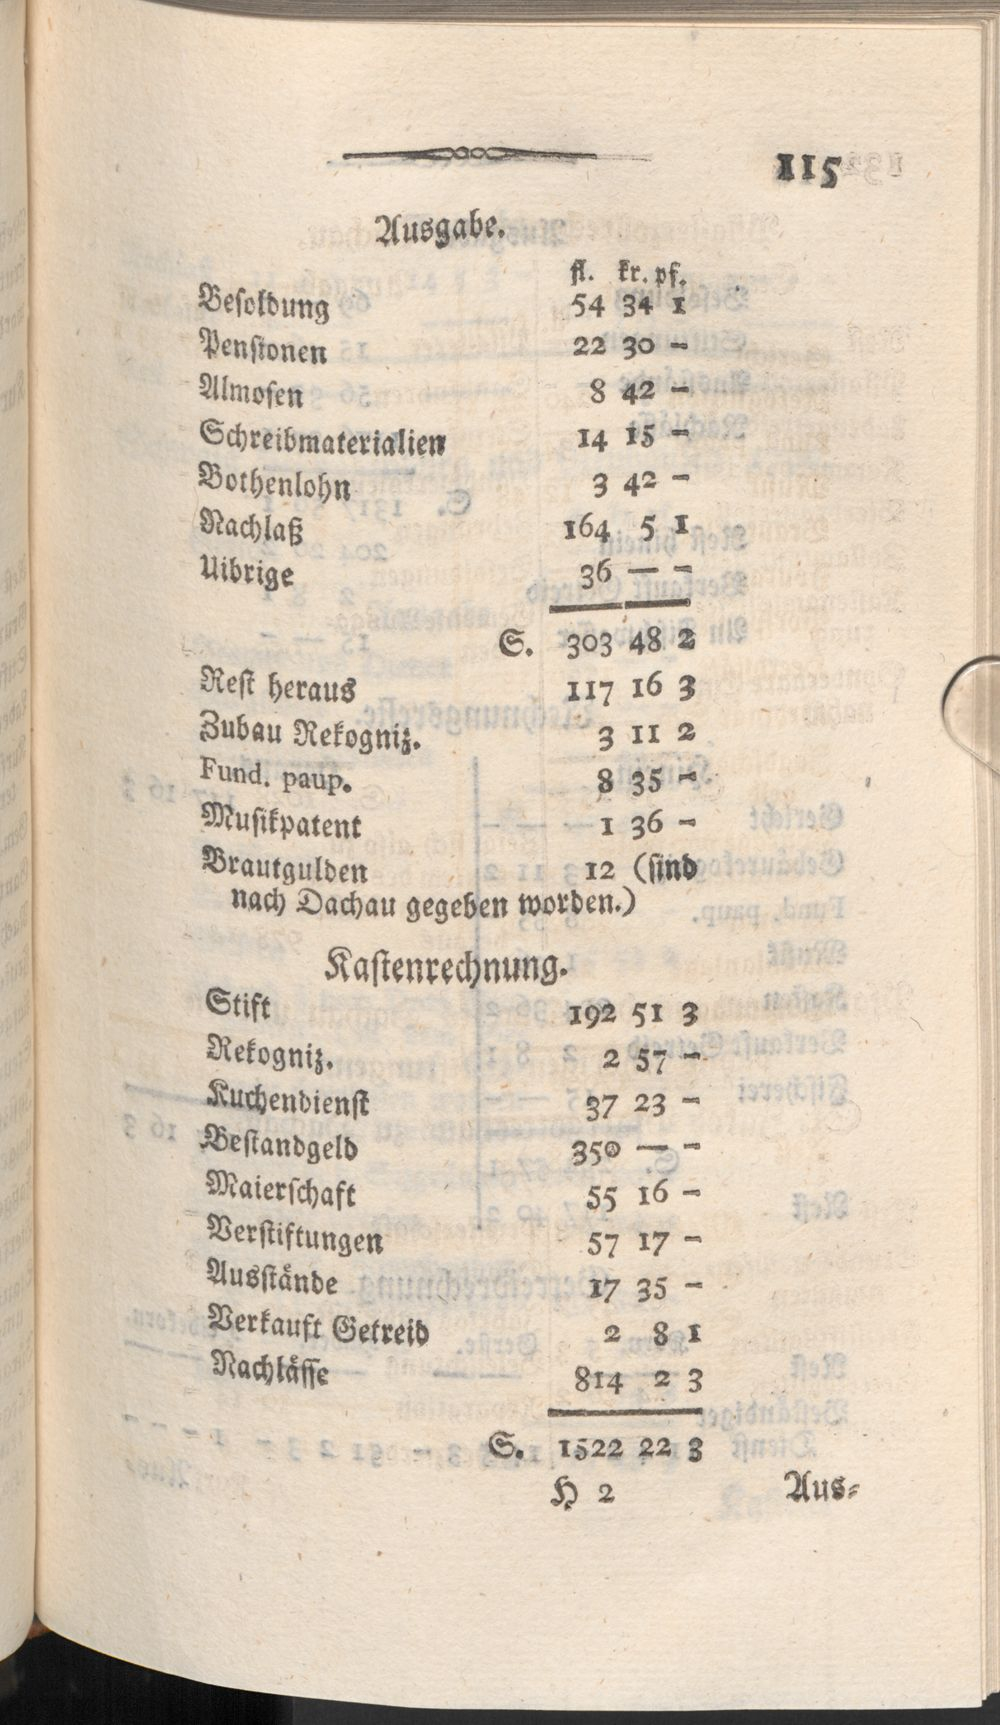 115
Ausgabe.
fl. kr. pf.
Besoldung 54 34 1
Pensionen 22 30 -
Almosen 8 42 -
Schreibmaterialien 14 15 -
Bothenlohn 3 42 -
Nachlaß 164 5 1
Uibrige 36 — -
S. 303 48 2
Rest heraus 117 16 3
Zubau Rekogniz. 3 11 2
Fund. paup. 8 35 -
Musikpatent 1 36 -
Brautgulden 12 (sind
nach Dachau gegeben worden.)
Kastenrechnung.
Stift 192 51 3
Rekogniz. 2 57 -
Kuchendienst 37 23 -
Bestandgeld 350 — -
Maierschaft 55 16 -
Verstiftungen 57 17 -
Ausstände 17 35 -
Verkauft Getreid 2 8 1
Nachlässe 814 2 3
S. 1522 22 3
H 2 Aus-